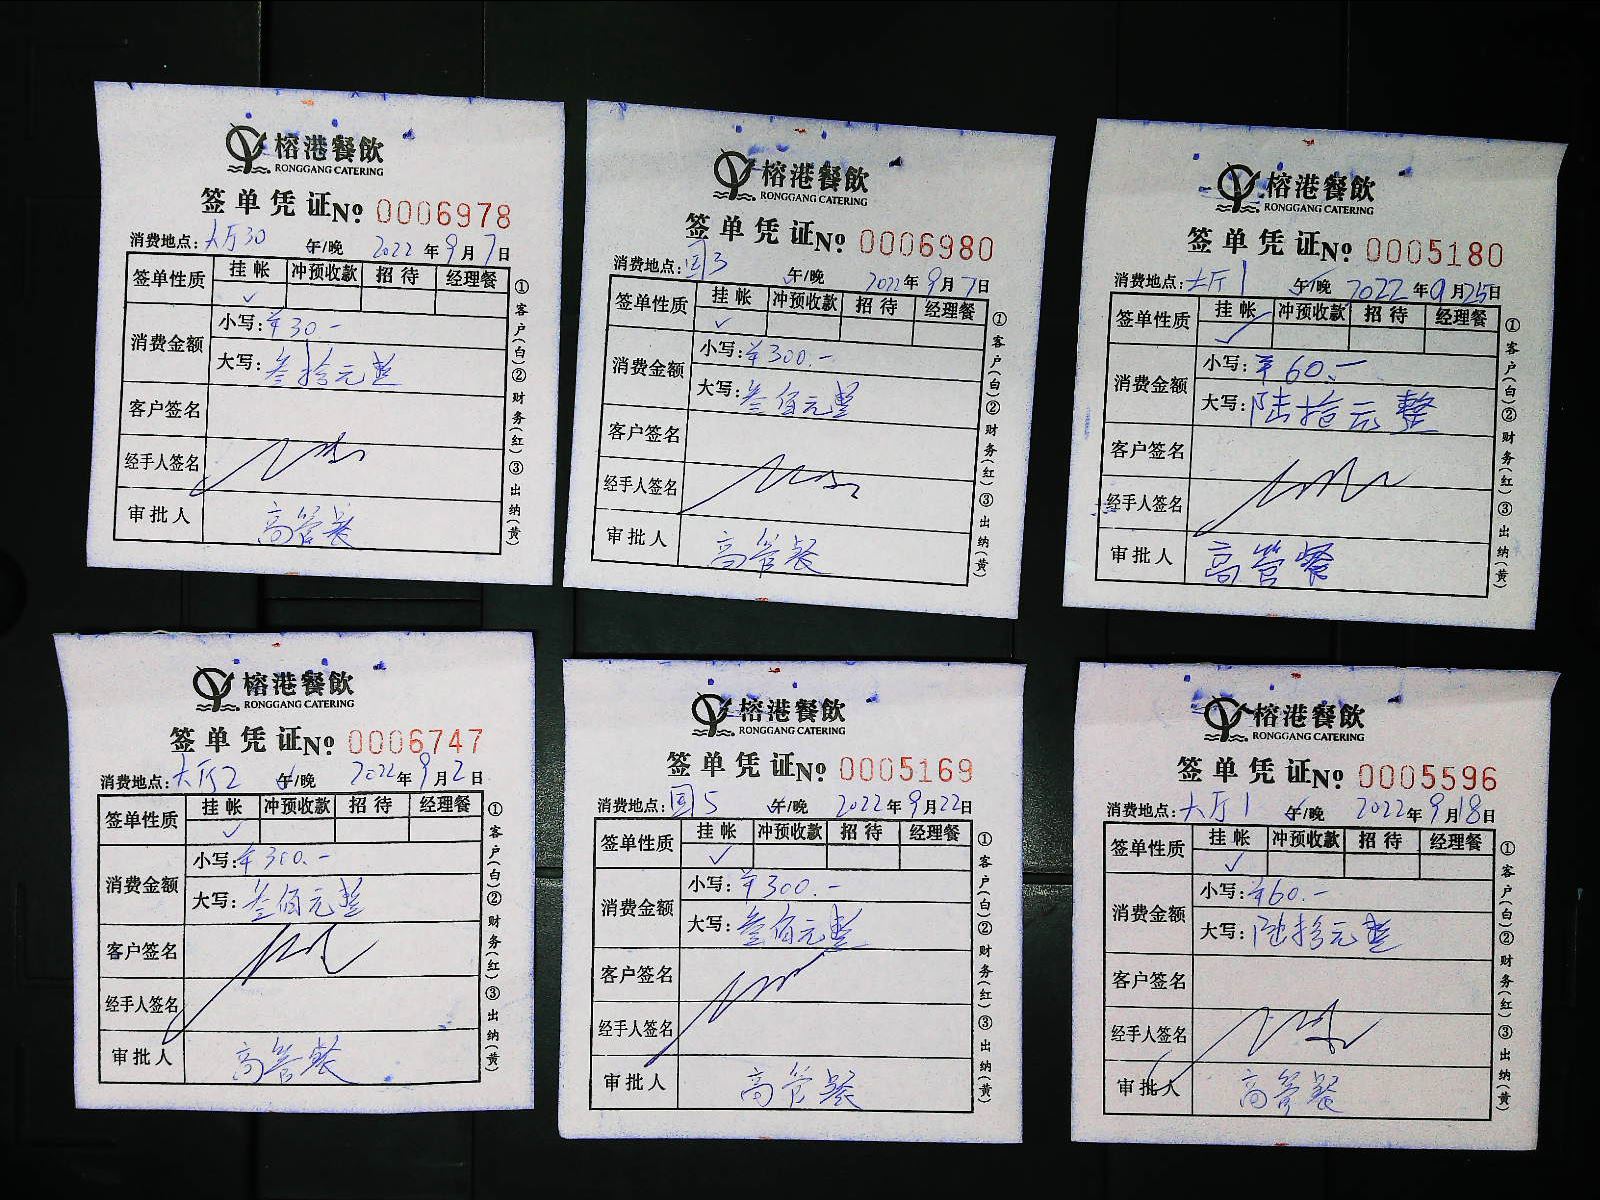 榕港餐飲
RONGGANG CATERING
签单凭证 № 0006978
消费地点：大厅30 午/晚 2022年9月7日
签单性质 挂帐 冲预收款 招待 经理餐
✓
消费金额 小写：¥30.-
大写：叁拾元整
客户签名
经手人签名
审批人 高管餐
①客户(白)②财务(红)③出纳(黄)
榕港餐飲
RONGGANG CATERING
签单凭证 № 0006980
消费地点：国3 午/晚 2022年9月7日
签单性质 挂帐 冲预收款 招待 经理餐
✓
消费金额 小写：¥300.-
大写：叁佰元整
客户签名
经手人签名
审批人 高管餐
①客户(白)②财务(红)③出纳(黄)
榕港餐飲
RONGGANG CATERING
签单凭证 № 0005180
消费地点：大厅1 午/晚 2022年9月25日
签单性质 挂帐 冲预收款 招待 经理餐
✓
消费金额 小写：¥60.-
大写：陆拾元整
客户签名
经手人签名
审批人 高管餐
①客户(白)②财务(红)③出纳(黄)
榕港餐飲
RONGGANG CATERING
签单凭证 № 0006747
消费地点：大厅2 午/晚 2022年9月2日
签单性质 挂帐 冲预收款 招待 经理餐
✓
消费金额 小写：¥300.-
大写：叁佰元整
客户签名
经手人签名
审批人 高管餐
①客户(白)②财务(红)③出纳(黄)
榕港餐飲
RONGGANG CATERING
签单凭证 № 0005169
消费地点：国5 午/晚 2022年9月22日
签单性质 挂帐 冲预收款 招待 经理餐
✓
消费金额 小写：¥300.-
大写：叁佰元整
客户签名
经手人签名
审批人 高管餐
①客户(白)②财务(红)③出纳(黄)
榕港餐飲
RONGGANG CATERING
签单凭证 № 0005596
消费地点：大厅1 午/晚 2022年9月18日
签单性质 挂帐 冲预收款 招待 经理餐
✓
消费金额 小写：¥60.-
大写：陆拾元整
客户签名
经手人签名
审批人 高管餐
①客户(白)②财务(红)③出纳(黄)